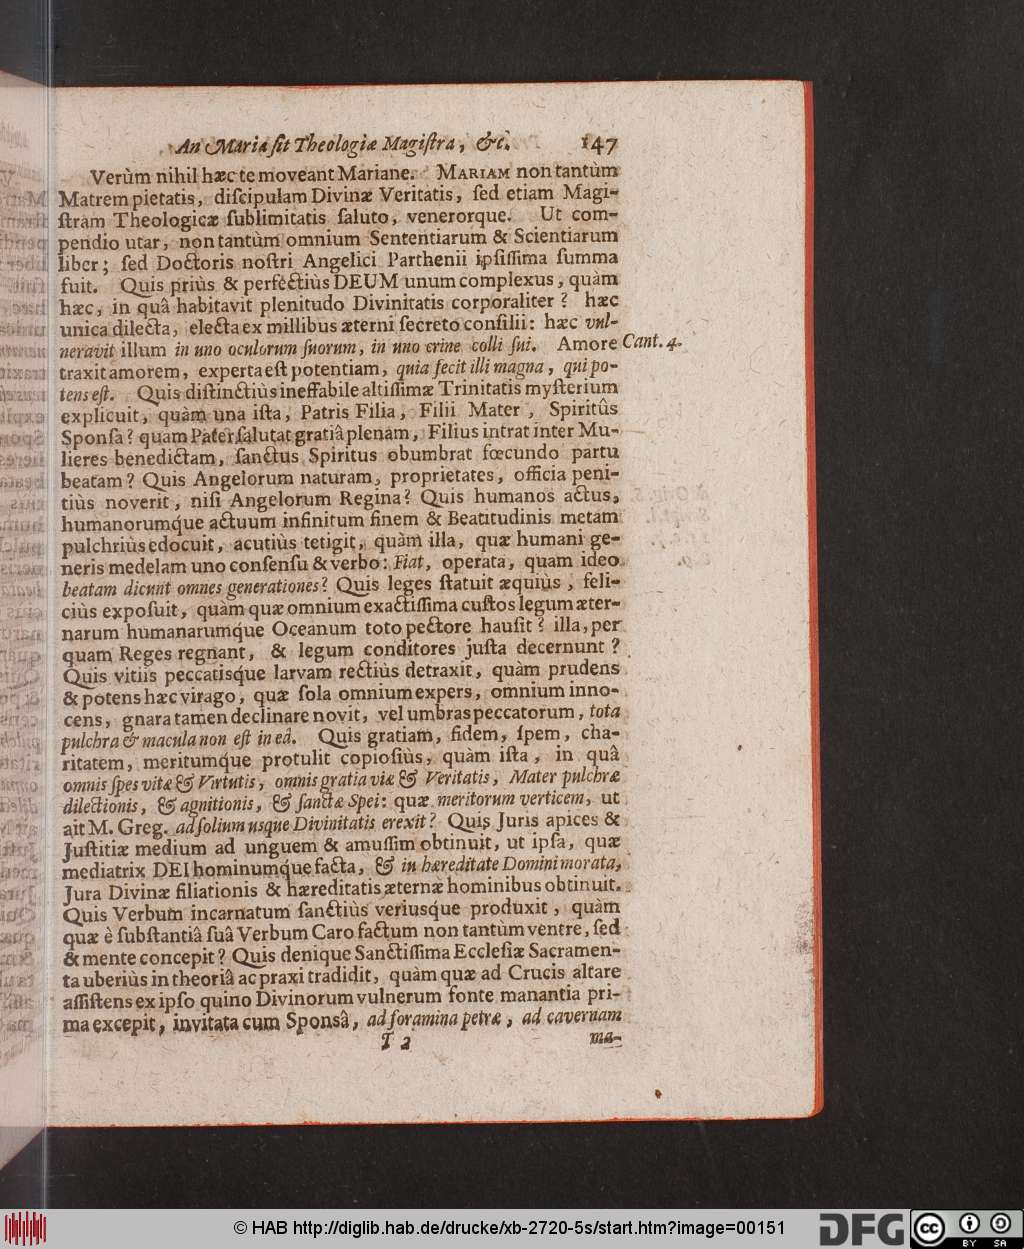 An Maria sit Theologiæ Magistra, &c. 147
Verùm nihil hæc te moveant Mariane. MARIAM non tantùm
Matrem pietatis, discipulam Divinæ Veritatis, sed etiam Magi-
stram Theologicæ sublimitatis saluto, venerorque. Ut com-
pendio utar, non tantùm omnium Sententiarum & Scientiarum
liber; sed Doctoris nostri Angelici Parthenii ipsissima summa
fuit. Quis priùs & perfectiùs DEUM unum complexus, quàm
hæc, in quâ habitavit plenitudo Divinitatis corporaliter? hæc
unica dilecta, electa ex millibus æterni secreto consilii: hæc vul-
neravit illum in uno oculorum suorum, in uno crine colli sui. Amore Cant. 4.
traxit amorem, experta est potentiam, quia fecit illi magna, qui po-
tens est. Quis distinctiùs ineffabile altissimæ Trinitatis mysterium
explicuit, quàm una ista, Patris Filia, Filii Mater, Spiritûs
Sponsa? quam Pater salutat gratiâ plenam, Filius intrat inter Mu-
lieres benedictam, sanctus Spiritus obumbrat fœcundo partu
beatam? Quis Angelorum naturam, proprietates, officia peni-
tiùs noverit, nisi Angelorum Regina? Quis humanos actus,
humanorumq́ue actuum infinitum finem & Beatitudinis metam
pulchriùs edocuit, acutiùs tetigit, quàm illa, quæ humani ge-
neris medelam uno consensu & verbo: Fiat, operata, quam ideo
beatam dicunt omnes generationes? Quis leges statuit æquiùs, feli-
ciùs exposuit, quàm quæ omnium exactissima custos legum æter-
narum humanarumq́ue Oceanum toto pectore hausit? illa, per
quam Reges regnant, & legum conditores justa decernunt?
Quis vitiis peccatisq́ue larvam rectiùs detraxit, quàm prudens
& potens hæc virago, quæ sola omnium expers, omnium inno-
cens, gnara tamen declinare novit, vel umbras peccatorum, tota
pulchra & macula non est in eâ. Quis gratiam, fidem, spem, cha-
ritatem, meritumque protulit copiosiùs, quàm ista, in quâ
omnis spes vitæ & Virtutis, omnis gratia viæ & Veritatis, Mater pulchræ
dilectionis, & agnitionis, & sanctæ Spei: quæ meritorum verticem, ut
ait M. Greg. ad solium usque Divinitatis erexit? Quis Juris apices &
Justitiæ medium ad unguem & amussim obtinuit, ut ipsa, quæ
mediatrix DEI hominumq́ue facta, & in hæreditate Domini morata,
Jura Divinæ filiationis & hæreditatis æternæ hominibus obtinuit.
Quis Verbum incarnatum sanctiùs veriusq́ue produxit, quàm
quæ è substantiâ suâ Verbum Caro factum non tantùm ventre, sed
& mente concepit? Quis denique Sanctissima Ecclesiæ Sacramen-
ta uberiùs in theoriâ ac praxi tradidit, quàm quæ ad Crucis altare
assistens ex ipso quino Divinorum vulnerum fonte manantia pri-
ma excepit, invitata cum Sponsâ, ad foramina petræ, ad cavernam
T 2 ma-
© HAB http://diglib.hab.de/drucke/xb-2720-5s/start.htm?image=00151
DFG
cc BY SA